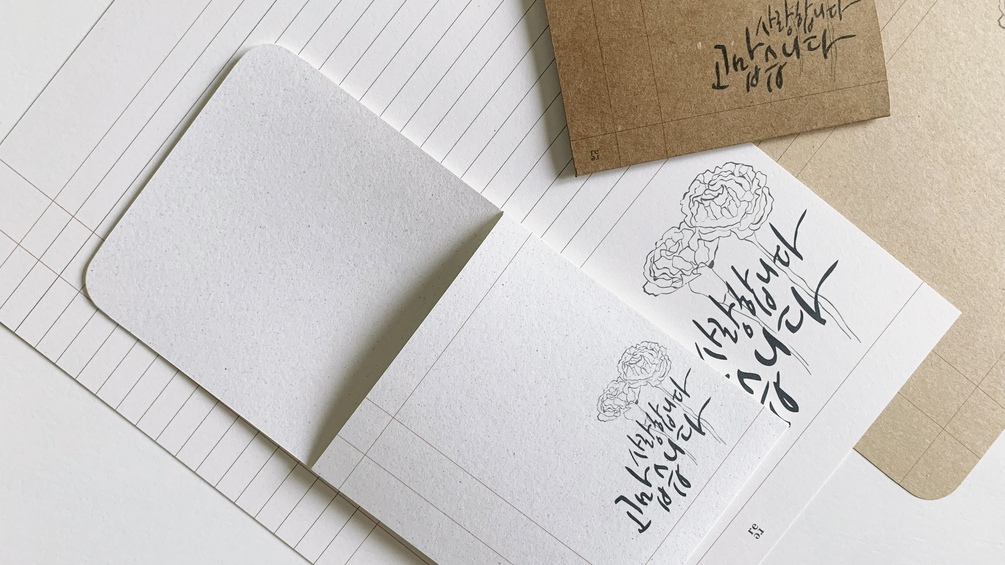 사랑합니다
고맙습니다
사랑합니다
습니다
사랑합니다
고맙습니다